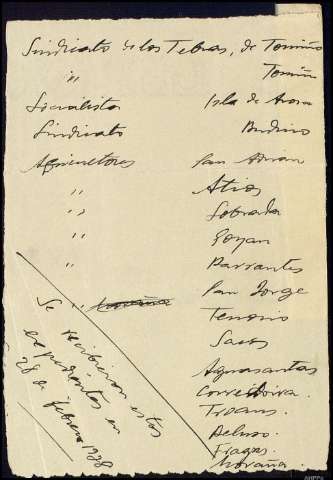 Sindicato de los Tebras, de Tomiño
" Tomiño
Socialista Isla de Arosa
Sindicato Budino
Agricultores San Adrian
" Atios
" Sobrada
" Goyan
" Barrantes
" San Jorge
Tenorio
Sacos
Aguasantas
Corredoira.
Troans.
Fragas
Moraña.
Se recibieron estos
expedientes en
28 de febrero 1938